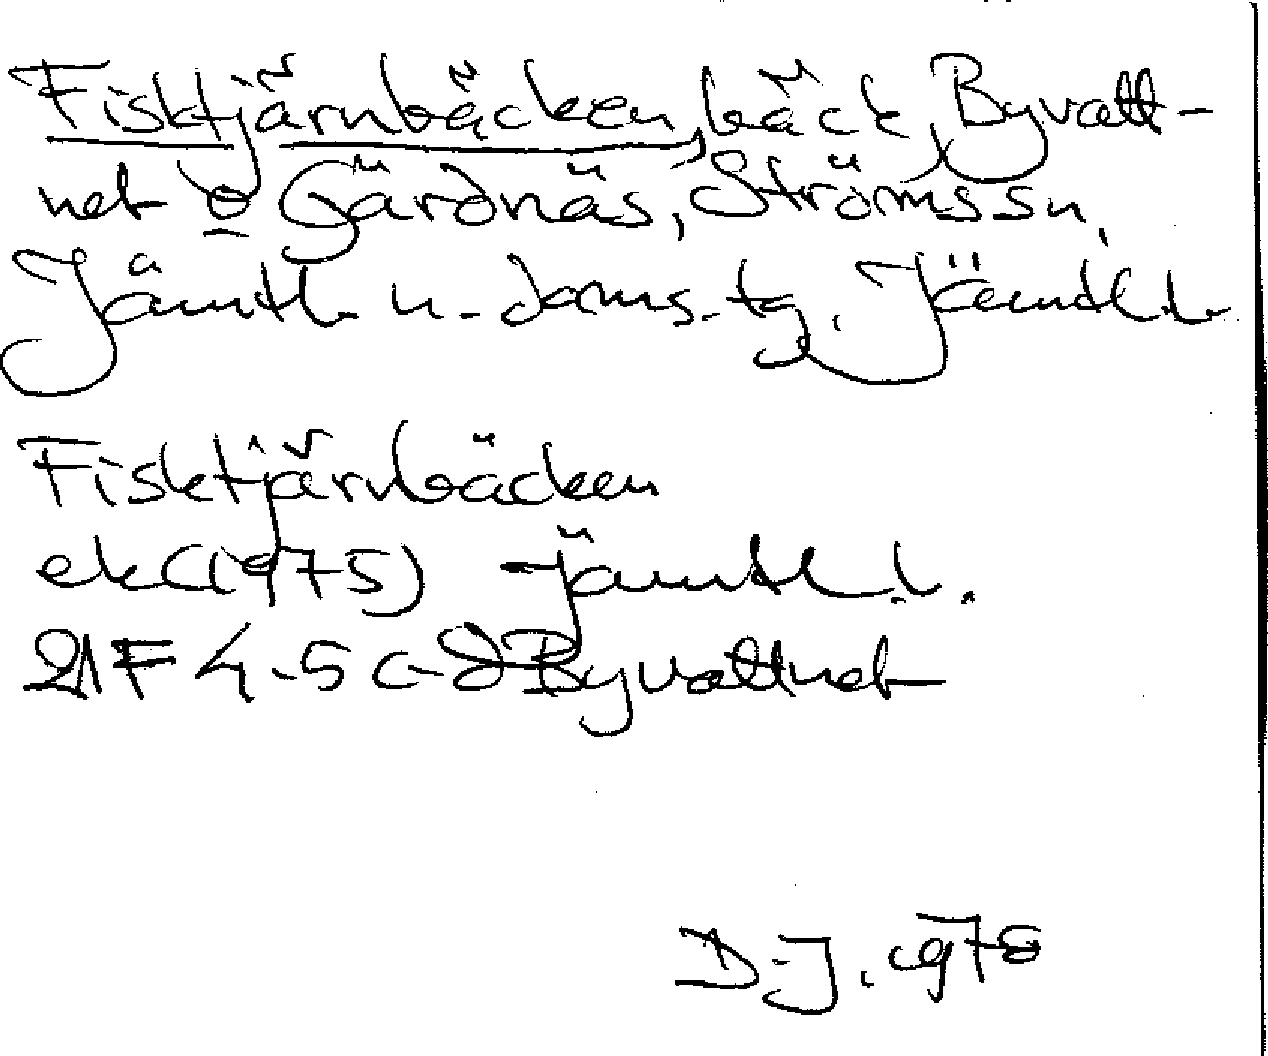 Fisktjärnbäcken, bäck, Byvatt-
net o Gärdnäs, Ströms sn,
Jämtl. n. doms. tg, Jämtl. l.
Fisktjärnbäcken
ek (1975) Jämtl. l.
21F 4-5 c-d Byvattnet
D-J. 1978